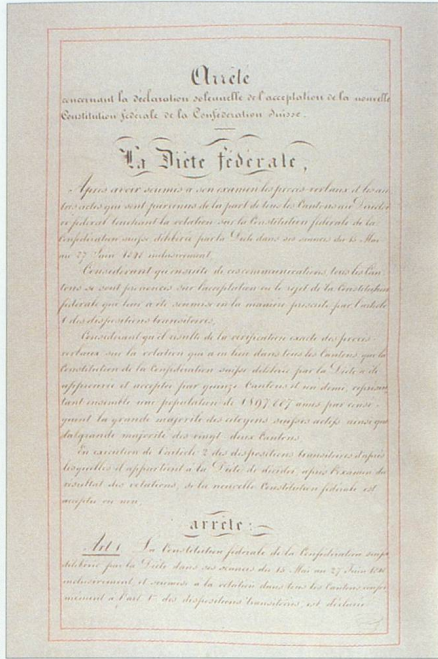 Arrêté
concernant la déclaration solennelle de l'acceptation de la nouvelle
Constitution fédérale de la Confédération Suisse.
La Diète fédérale,
Après avoir soumis à son examen les procès-verbaux et les au-
tres actes qui sont parvenus de la part de tous les Cantons au Directoi-
re fédéral touchant la votation sur la Constitution fédérale de la
Confédération suisse délibérée par la Diète dans ses séances du 15 Mai
au 27 Juin 1848 inclusivement.
Considérant qu'ensuite de ces communications, tous les Can-
tons se sont prononcés sur l'acceptation ou le rejet de la Constitution
fédérale qui leur a été soumise en la manière prescrite par l'article
1 des dispositions transitoires,
Considérant qu'il résulte de la vérification exacte des procès
verbaux sur la votation qui a eu lieu dans tous les Cantons que la
Constitution de la Confédération suisse délibérée par la Diète a été
approuvée et acceptée par quinze Cantons et un demi, représen-
tant ensemble une population de 1'897'887 âmes par conse-
quent la grande majorité des citoyens suisses actifs ainsi que
la grande majorité des vingt-deux Cantons
En exécution de l'article 2 des dispositions transitoires d'après
lesquelles il appartient à la Diète de décider, après l'examen du
résultat des votations, si la nouvelle Constitution fédérale est
acceptée ou non
arrête:
Art 1. La Constitution fédérale de la Confédération suisse
délibérée par la Diète dans ses séances du 15 Mai au 27 Juin 1848
inclusivement, et soumise à la votation dans tous les Cantons confor-
mément à l'art. 1er des dispositions transitoires, est déclarée